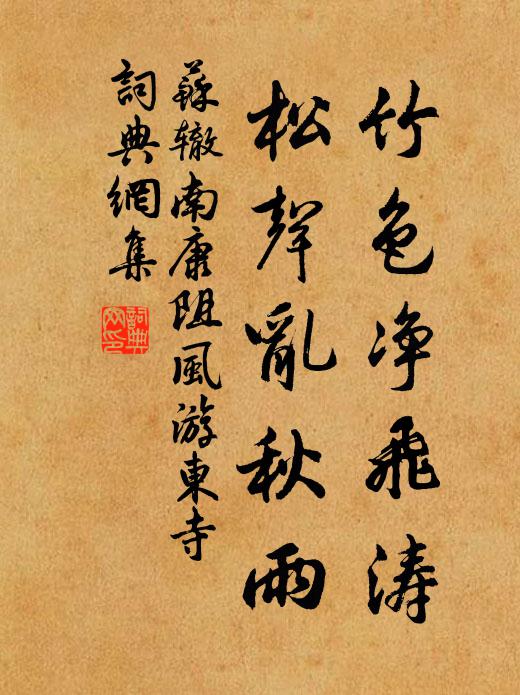 竹色净飛涛
松聲亂秋雨
蘇辙南康阻風游東寺
詞典網集
詞典网印